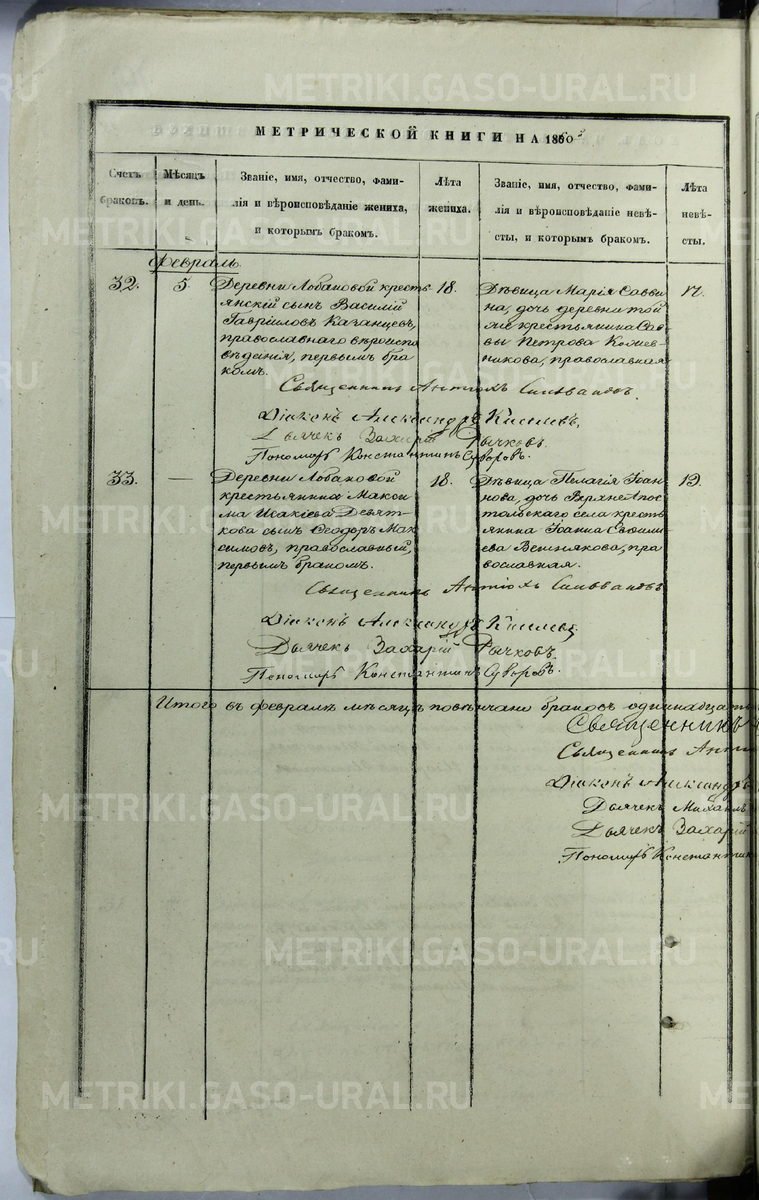 МЕТРИЧЕСКОЙ КНИГИ НА 1860 2
Счетъ браковъ.
Мѣсяцъ и день.
Званіе, имя, отчество, фами-
лія и вѣроисповѣданіе жениха,
и которымъ бракомъ.
Лѣта жениха.
Званіе, имя, отчество, фами-
лія и вѣроисповѣданіе невѣ-
сты, и которымъ бракомъ.
Лѣта невѣ-
сты.
Февраль.
32.
5
Деревни Лобановой кресть
янскій сынъ Василій
Гавріиловъ Качанцевъ,
православнаго вѣроиспо
вѣданія, первымъ бра
комъ.
18.
Дѣвица Марія Савви
на, дочь деревни той
же крестьянина Сав
вы Петрова Кожев
никова, православная
17.
Священникъ Антіохъ Сильвановъ.
Діаконъ Александръ Киселевъ.
Дьячекъ Захарій Рычковъ.
Пономарь Константинъ Суворовъ.
33.
—
Деревни Лобановой
крестьянина Макси
ма Исакіева Девят
кова сынъ Ѳеодоръ Мак
симовъ, православный,
первымъ бракомъ.
18.
Дѣвица Пелагія Іоан
нова, дочь Верхне Апос
тольскаго села кресть
янина Іоанна
Вешнякова, пра
вославная.
19.
Священникъ Антіохъ Сильвановъ
Діаконъ Александръ Киселевъ
Дьячекъ Захарій Рычковъ.
Пономарь Константинъ Суворовъ.
Итого въ февралѣ мѣсяцѣ повѣнчано браковъ одиннадцать
Священникъ
Священникъ Анті
Діаконъ Александръ
Дьячекъ Михаилъ
Дьячекъ Захарій
Пономарь Константин
METRIKI.GASO-URAL.RU